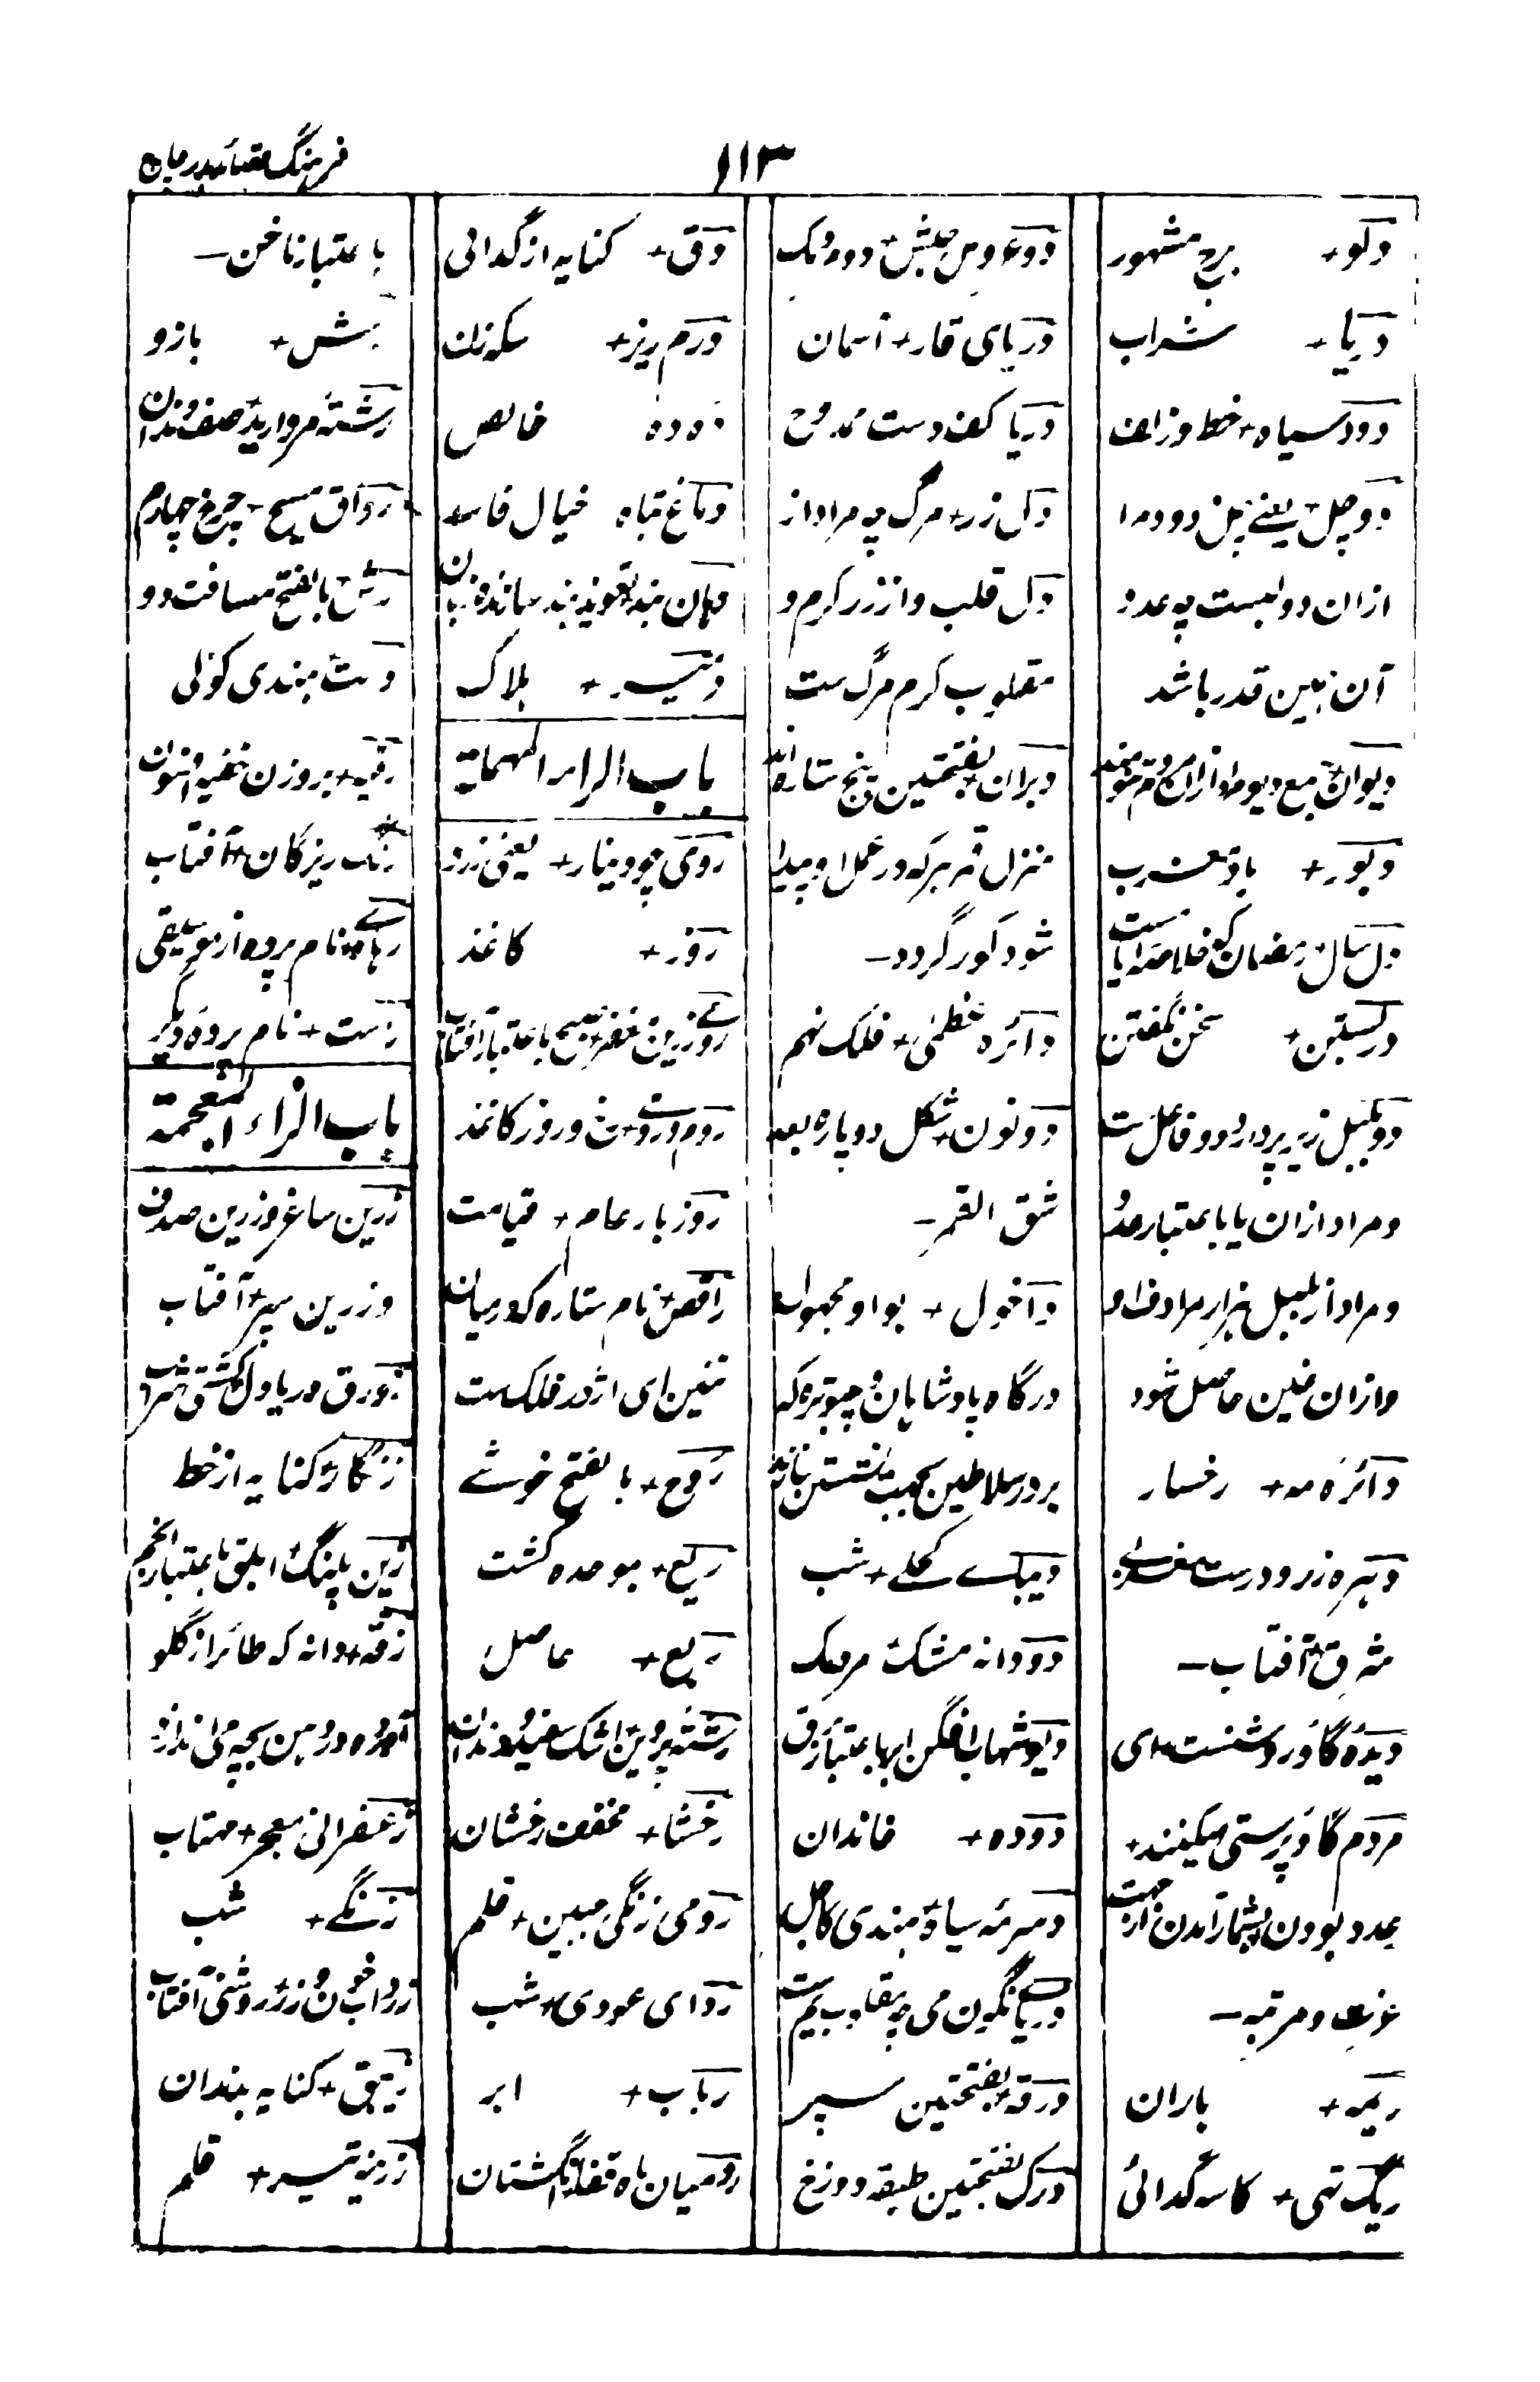 ۱۱۳
فرہنگ قصائد بدرچاچ
دلو+ برج مشہور
دریا+ شراب
دود سیاہ+ خط و زلف
دو چل یعنے چل دو
ازان دولبست چہ عدد
آن ہمین قدر باشد
دیوان جمع دیو مراد ازان مردم
دبور+ باد مغرب
دل سال رمضان کہ خلاصہ
در بستن+ سخن نگفتن
دو بلبل زیر پر دارد و فاعل ست
و مراد ازان یا باعتبار عدد
و مراد از بلبل ہزار مرادف او
و ازان غین حاصل شود
دائرہ مہ+ رخسار
دہرہ زر و درست مغربی
مشرقی آفتاب—
دیدہ گاو روشنست ای
مردم گاو پرستی میکنند+
بعدد بودن بشمار آمدن از جہت
عزت و مرتبہ—
ریمہ+ باران
ریگ تہی+ کاسہ گدائی
دو عروس حبش+ دو مردمک
دریای قار+ آسمان
دریا کف دست ممدوح
دل زر+ مرگ چہ مراد از
دل قلب و از زر کرم و
مقلوب کرم مرگ ست
دبران بفتحتین پنج ستارہ اند
منزل قمر ہر کہ در عمل او پیدا
شود کور گردد—
دائرہ عظمی+ فلک نہم
دو نون+ شکل دو پارہ بعد
شق القمر—
داخول+ بواو مجہول
درگاہ پادشاہان و چبوترہ کہ
بر در سلاطین بجہت نشستن
دیبای کحلے+ شب
دو دانہ مشک+ مردمک
دیو شہاب افگن ابر باعتبار برق
دودہ+ خاندان
سرمہ سیاہ ہندی کاجل
دریای نگون می چہ مقلوب یم ست
درقہ+ بفتحتین سپر
درک بفتحتین طبقہ دوزخ
دق+ کنایہ از گدائی
درم ریز+ سکہ زن
دہ دہ خالص
دماغ تباہ خیال فاسد
دہان بند+ تعویذ بند
+ ہلاک
باب الراء المہملۃ
روی چو دینار+ یعنی زرد
روز+ کاغذ
روے زرین صبح باعتبار آفتاب
روم و رو+ روز کاغذ
روز بار عام+ قیامت
راقص+ نام ستارہ کہ درمیان
تنین ای اژدر فلک ست
روح+ بالفتح خوشے
ریع+ بموحدہ کشت
ریع+ حاصل
رشتہ پروین+ اشک سفید و دندان
رخشا+ مخفف رخشان
رومی زنگی جبین+ قلم
ردای عودی+ شب
رباب+ ابر
رومیان ماہ قفا+ انگشتان
باعتبار ناخن—
رش+ بازو
رشتہ مروارید+ صف دندان
رواق مسیح+ چرخ چہارم
رش+ بالفتح مسافت دو
دست ہندی کولی
رقیہ+ بروزن خفیہ افسون
رنگ ریز کان+ آفتاب
رہاوے+ نام پردہ از موسیقی
راست+ نام پردہ دیگر
باب الزاء المعجمۃ
زرین ساغر و زرین صدف
و زرین سپر+ آفتاب
زورق دریا دل+ کشتی شراب
زنگار+ کنایہ از خط
زین پلنگ+ ابلق باعتبار انجم
زقہ+ دانہ کہ طائر از گلو
آوردہ در دہن بچہ می اندازد
زعفرانی معجر+ مہتاب
زنگے+ شب
زر+ روشنی آفتاب
زیبق+ کنایہ بدندان
زرینہ تیر+ قلم